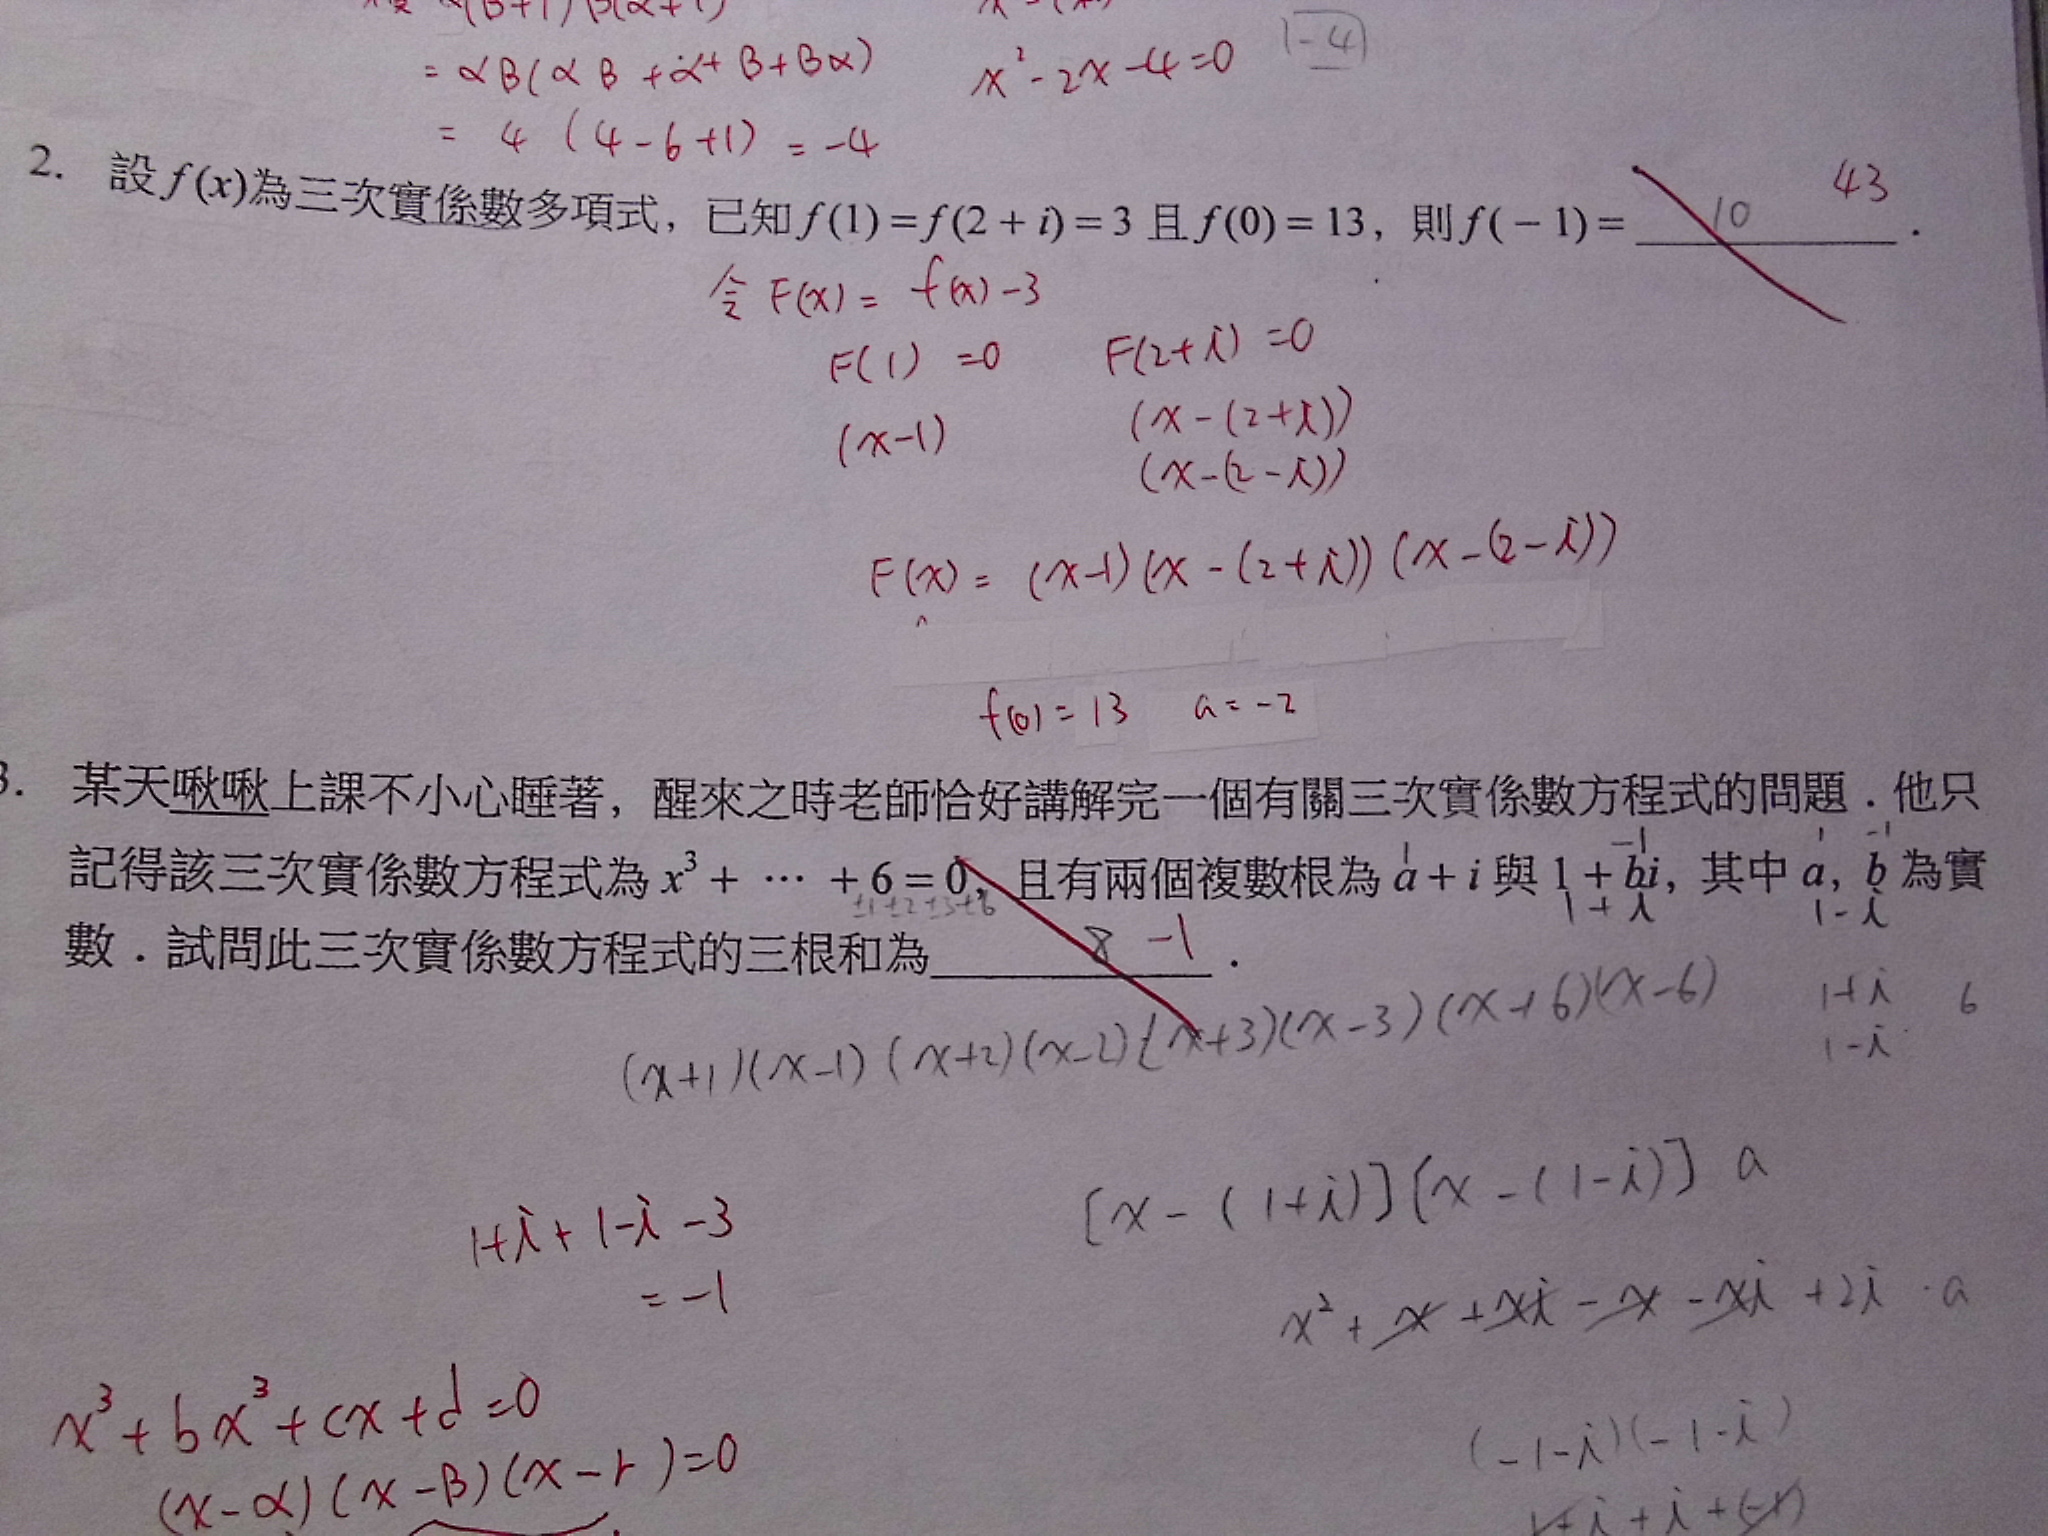 α(B+1)B(α+1)
= αB(αB+α+B+Bα)
= 4 (4-6+1) = -4
x²-2x-4=0
-4
2. 設f(x)為三次實係數多項式，已知f(1)=f(2+i)=3且f(0)=13，則f(-1)= 10 43 .
令 F(x) = f(x)-3
F(1) =0 F(2+i) =0
(x-1) (x-(2+i))
(x-(2-i))
F(x) = (x-1)(x-(2+i))(x-(2-i))
f(0)=13 a=-2
3. 某天啾啾上課不小心睡著，醒來之時老師恰好講解完一個有關三次實係數方程式的問題．他只
1 -1 1 -1
記得該三次實係數方程式為x³+ … +6=0，且有兩個複數根為a+i與1+bi，其中a，b為實
±1±2±3±6 1+i 1-i
數．試問此三次實係數方程式的三根和為 8 -1 .
(x+1)(x-1)(x+2)(x-2)(x+3)(x-3)(x+6)(x-6)
1+i 6
1-i
[x-(1+i)][x-(1-i)] a
1+i+1-i-3
= -1
x²+x+xi-x-xi+2i·a
x³+bx³+cx+d=0
(-1-i)(-1-i)
(x-α)(x-B)(x-r)=0